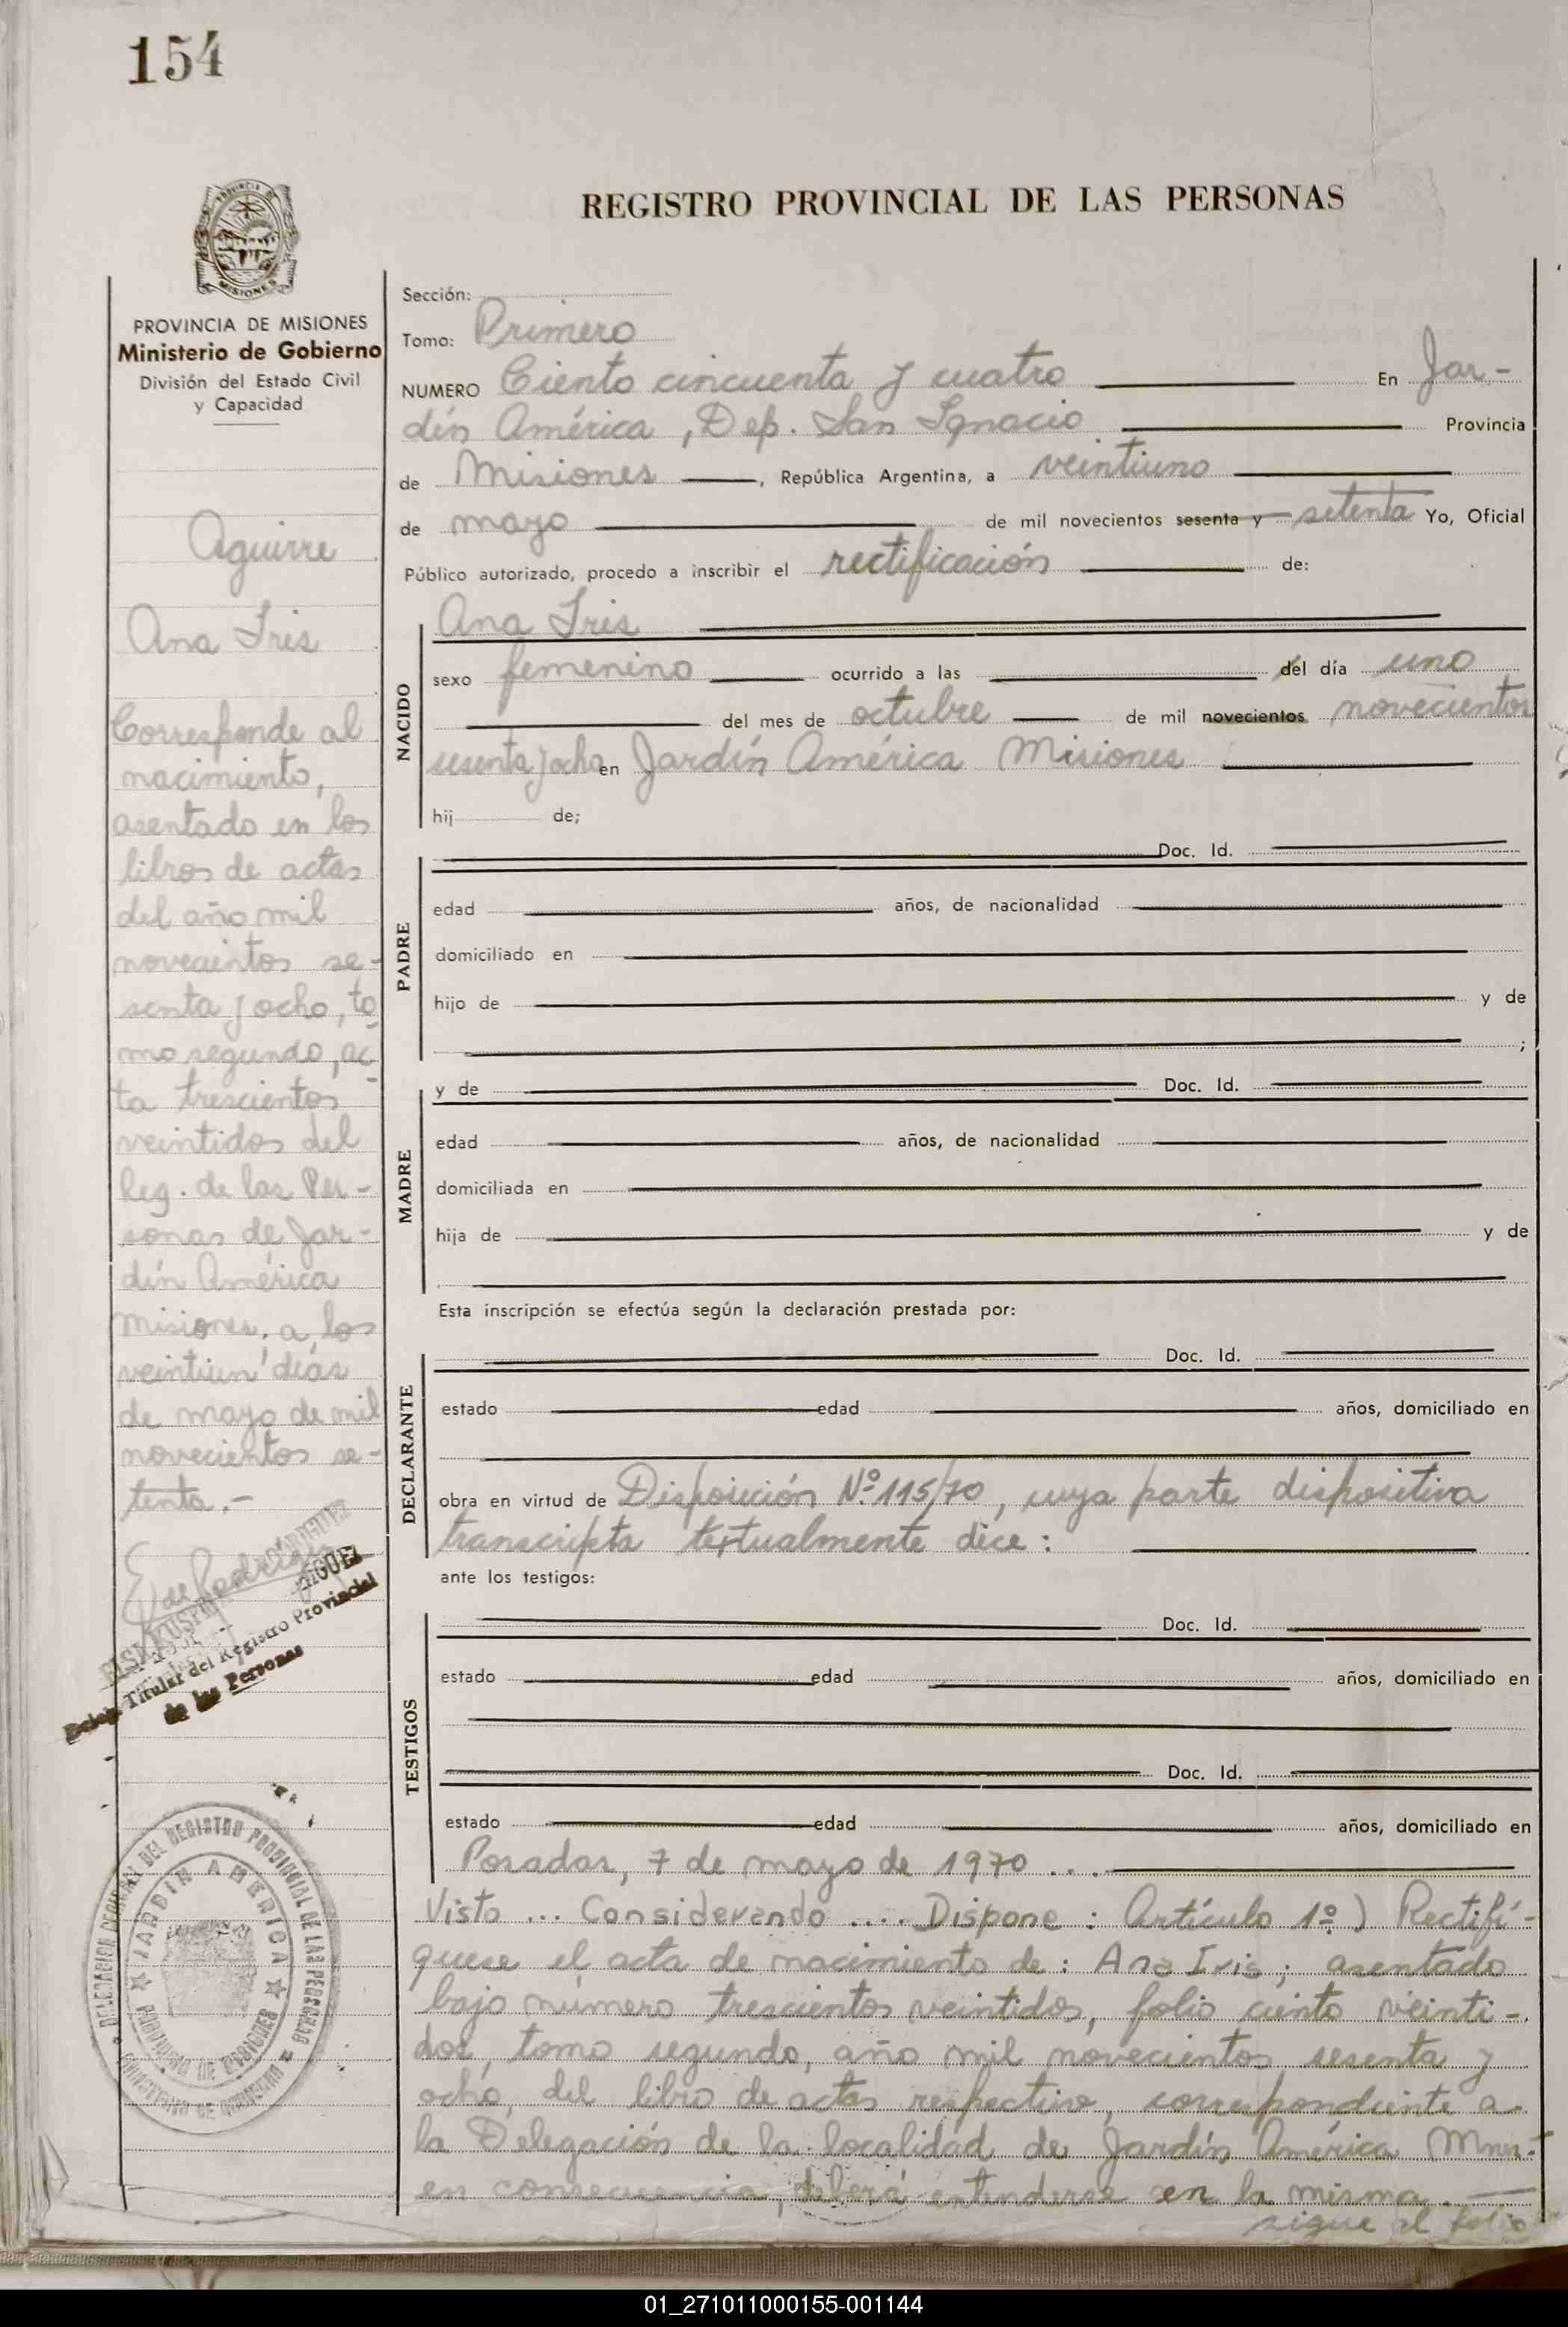 154
REGISTRO PROVINCIAL DE LAS PERSONAS
PROVINCIA DE MISIONES
Ministerio de Gobierno
División del Estado Civil
y Capacidad
Aguirre
Ana Iris
Corresponde al
nacimiento,
asentado en los
libros de actas
del año mil
novecientos se-
senta y ocho, to
mo segundo, ac
ta trescientos
veintidos del
Reg. de las Per-
sonas de Jar-
dín América
Misiones, a los
veintiún días
de mayo de mil
novecientos se-
tenta.-
Titular del Registro Provincial
de las Personas
DEL REGISTRO PROVINCIAL DE LAS PERSONAS
JARDIN AMERICA
Sección:
Tomo: Primero
NUMERO Ciento cincuenta y cuatro En Jar-
dín América, Dep. San Ignacio Provincia
de Misiones, República Argentina, a veintiuno
de mayo de mil novecientos sesenta y setenta Yo, Oficial
Público autorizado, procedo a inscribir el rectificación de:
NACIDO
Ana Iris
sexo femenino ocurrido a las del día uno
del mes de octubre de mil novecientos novecientos
sesenta y ocho en Jardín América Misiones
hij de;
PADRE
Doc. Id.
edad años, de nacionalidad
domiciliado en
hijo de y de
;
MADRE
y de Doc. Id.
edad años, de nacionalidad
domiciliada en
hija de y de
Esta inscripción se efectúa según la declaración prestada por:
DECLARANTE
Doc. Id.
estado edad años, domiciliado en
obra en virtud de Disposición Nº 115/70, cuya parte dispositiva
transcripta textualmente dice:
ante los testigos:
TESTIGOS
Doc. Id.
estado edad años, domiciliado en
Doc. Id.
estado edad años, domiciliado en
Posadas, 7 de mayo de 1970 ...
Visto ... Considerando .... Dispone: Artículo 1º) Rectifí-
quese el acta de nacimiento de: Ana Iris; asentado
bajo número trescientos veintidos, folio ciento veinti-
dos, tomo segundo, año mil novecientos sesenta y
ocho, del libro de actas respectivo, correspondiente a
la Delegación de la localidad de Jardín América Mnes.-
en consecuencia, deberá entenderse en la misma.
sigue al folio
01_271011000155-001144